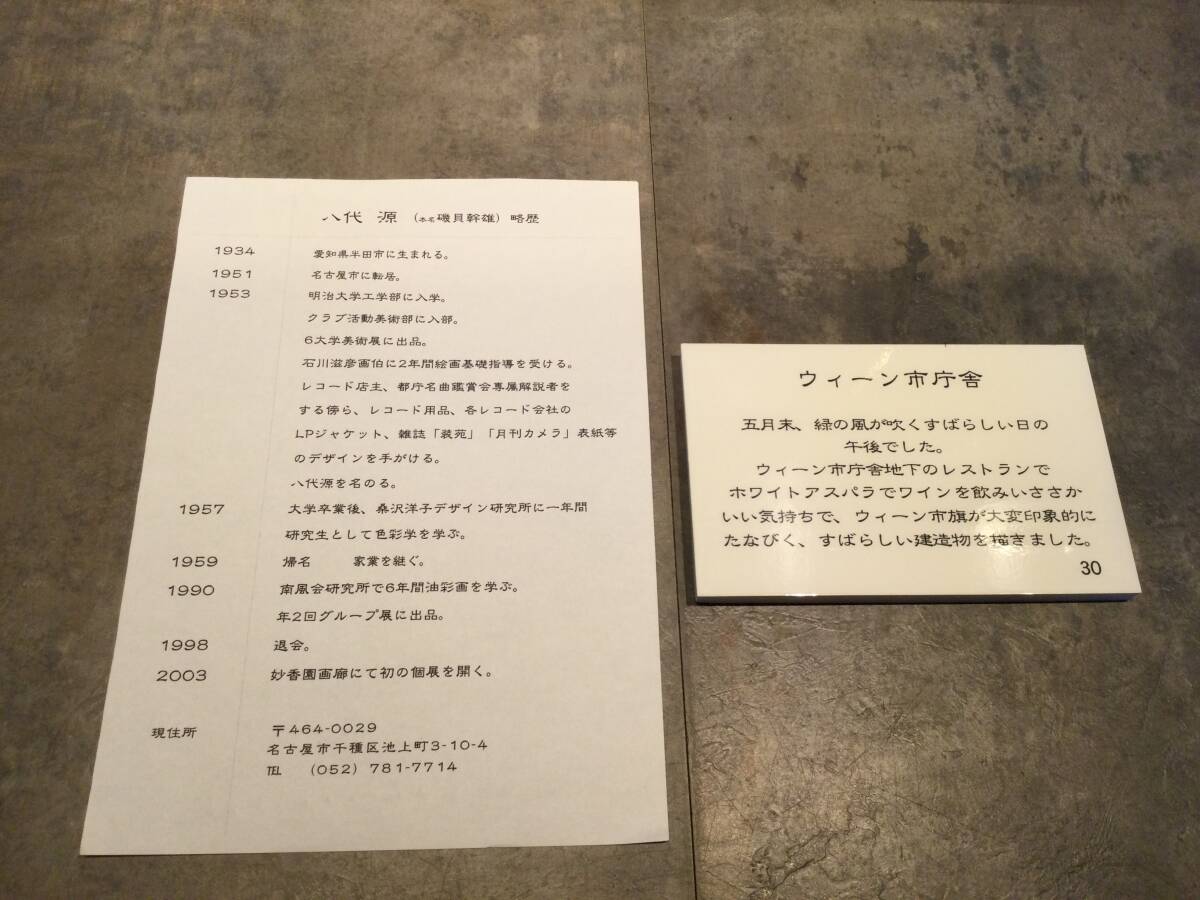 八代 源 (本名磯貝幹雄) 略歴
1934 愛知県半田市に生まれる。
1951 名古屋市に転居。
1953 明治大学工学部に入学。
クラブ活動美術部に入部。
6大学美術展に出品。
石川滋彦画伯に2年間絵画基礎指導を受ける。
レコード店主、都庁名曲鑑賞会専属解説者を
する傍ら、レコード用品、各レコード会社の
LPジャケット、雑誌「装苑」「月刊カメラ」表紙等
のデザインを手がける。
八代源を名のる。
1957 大学卒業後、桑沢洋子デザイン研究所に一年間
研究生として色彩学を学ぶ。
1959 帰名 家業を継ぐ。
1990 南風会研究所で6年間油彩画を学ぶ。
年2回グループ展に出品。
1998 退会。
2003 妙香園画廊にて初の個展を開く。
現住所 〒464-0029
名古屋市千種区池上町3-10-4
℡ (052) 781-7714
ウィーン市庁舎
五月末、緑の風が吹くすばらしい日の
午後でした。
ウィーン市庁舎地下のレストランで
ホワイトアスパラでワインを飲みいささか
いい気持ちで、ウィーン市旗が大変印象的に
たなびく、すばらしい建造物を描きました。
30